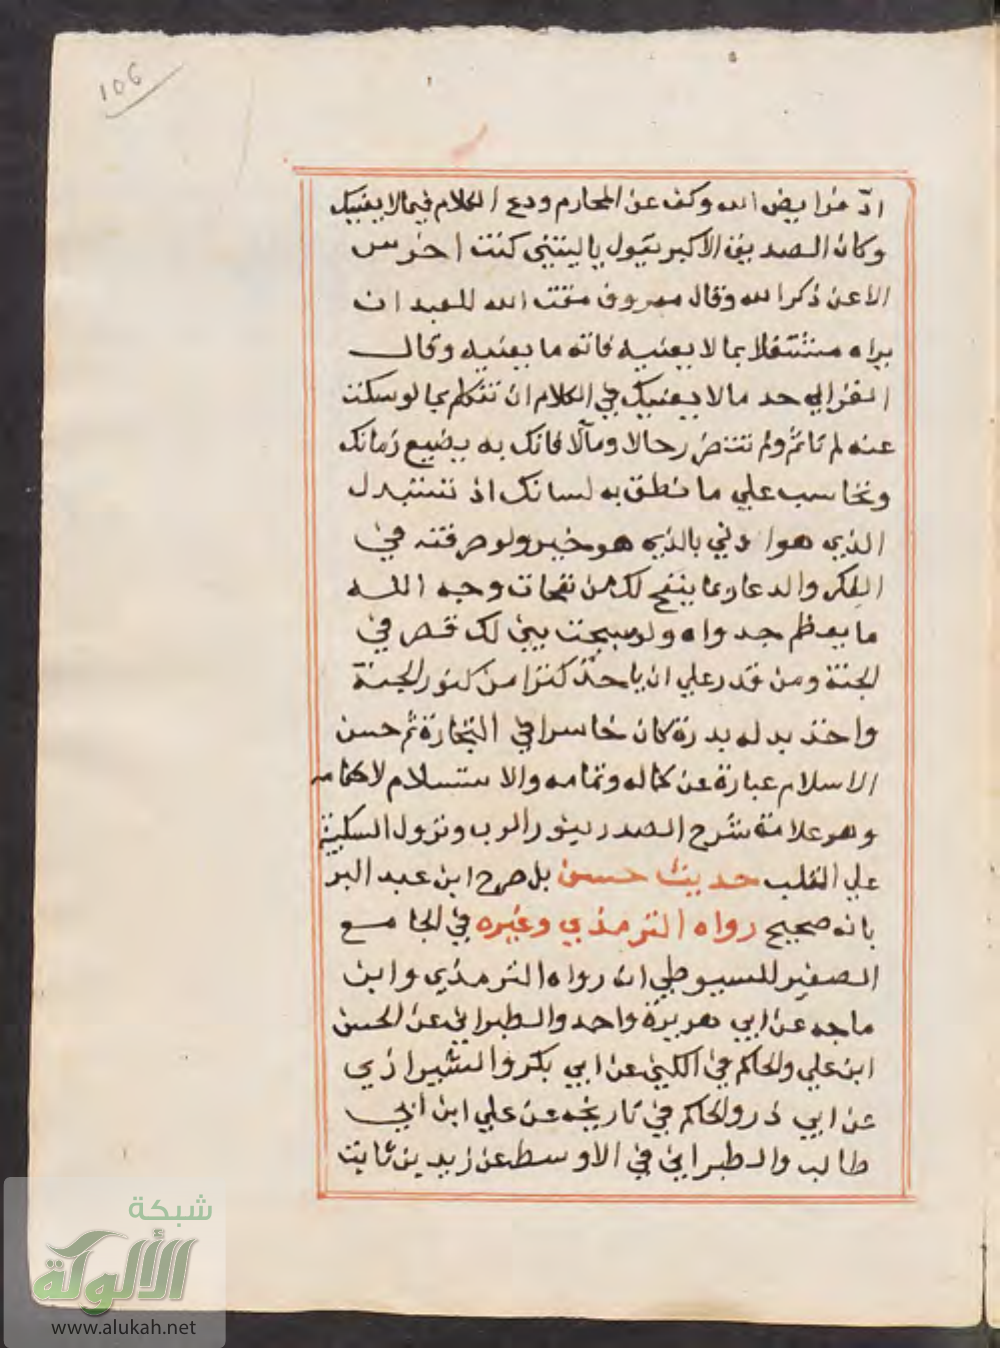 106
ادّ فرايض الله وكف عن المحارم ودع الكلام فيمالا يعنيك
وكان الصديق الاكبر يقول ياليتني كنت اخرس
الا عن ذكر الله وقال معروف مقت الله للعبد ان
يراه مشتغلا بما لا يعنيه فاته ما يعنيه وقال
الغزالي حد مالا يعنيك في الكلام ان تتكلم بما لو سكت
عنه لم تاثم ولم تتضر رحالا ومآلا فانك به يضيع زمانك
وتحاسب علي ما نطق به لسانك اذ تستبدل
الذي هو ادني بالذي هو خير ولو صرفته في
الفكر والدعا ربما ينفح لك من نفحات وجه الله
ما يعظم جدواه ولو سبحت بني لك قصر في
الجنة ومن قدر علي ان ياخذ كنزا من كنوز الجنة
واخذ بدله بدرة كان خاسرا في التجارة ثم حسن
الاسلام عبارة عن كماله وتمامه والاستسلام لاحكامه
وهو علامة شرح الصدر بنور الرب ونزول السكينة
علي القلب حديث حسن بل صرح ابن عبد البر
بانه صحيح رواه الترمذي وغيره في الجامع
الصغير للسيوطي ان رواه الترمذي وابن
ماجه عن ابي هريرة واحمد والطبراني عن الحسن
ابن علي والحاكم في الكني عن ابي بكر والشيرازي
عن ابي ذر والحاكم في تاريخه عن علي ابن ابي
طالب والطبراني في الاوسط عن زيد بن ثابت
شبكة
الألوكة
www.alukah.net